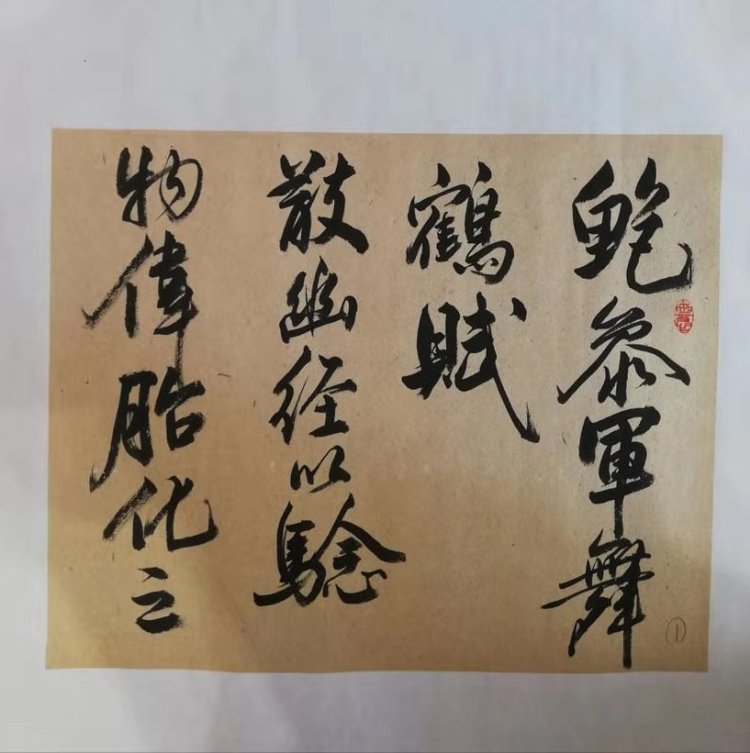 鮑叅軍舞
鶴賦
散幽經以騐
物偉胎化之
①